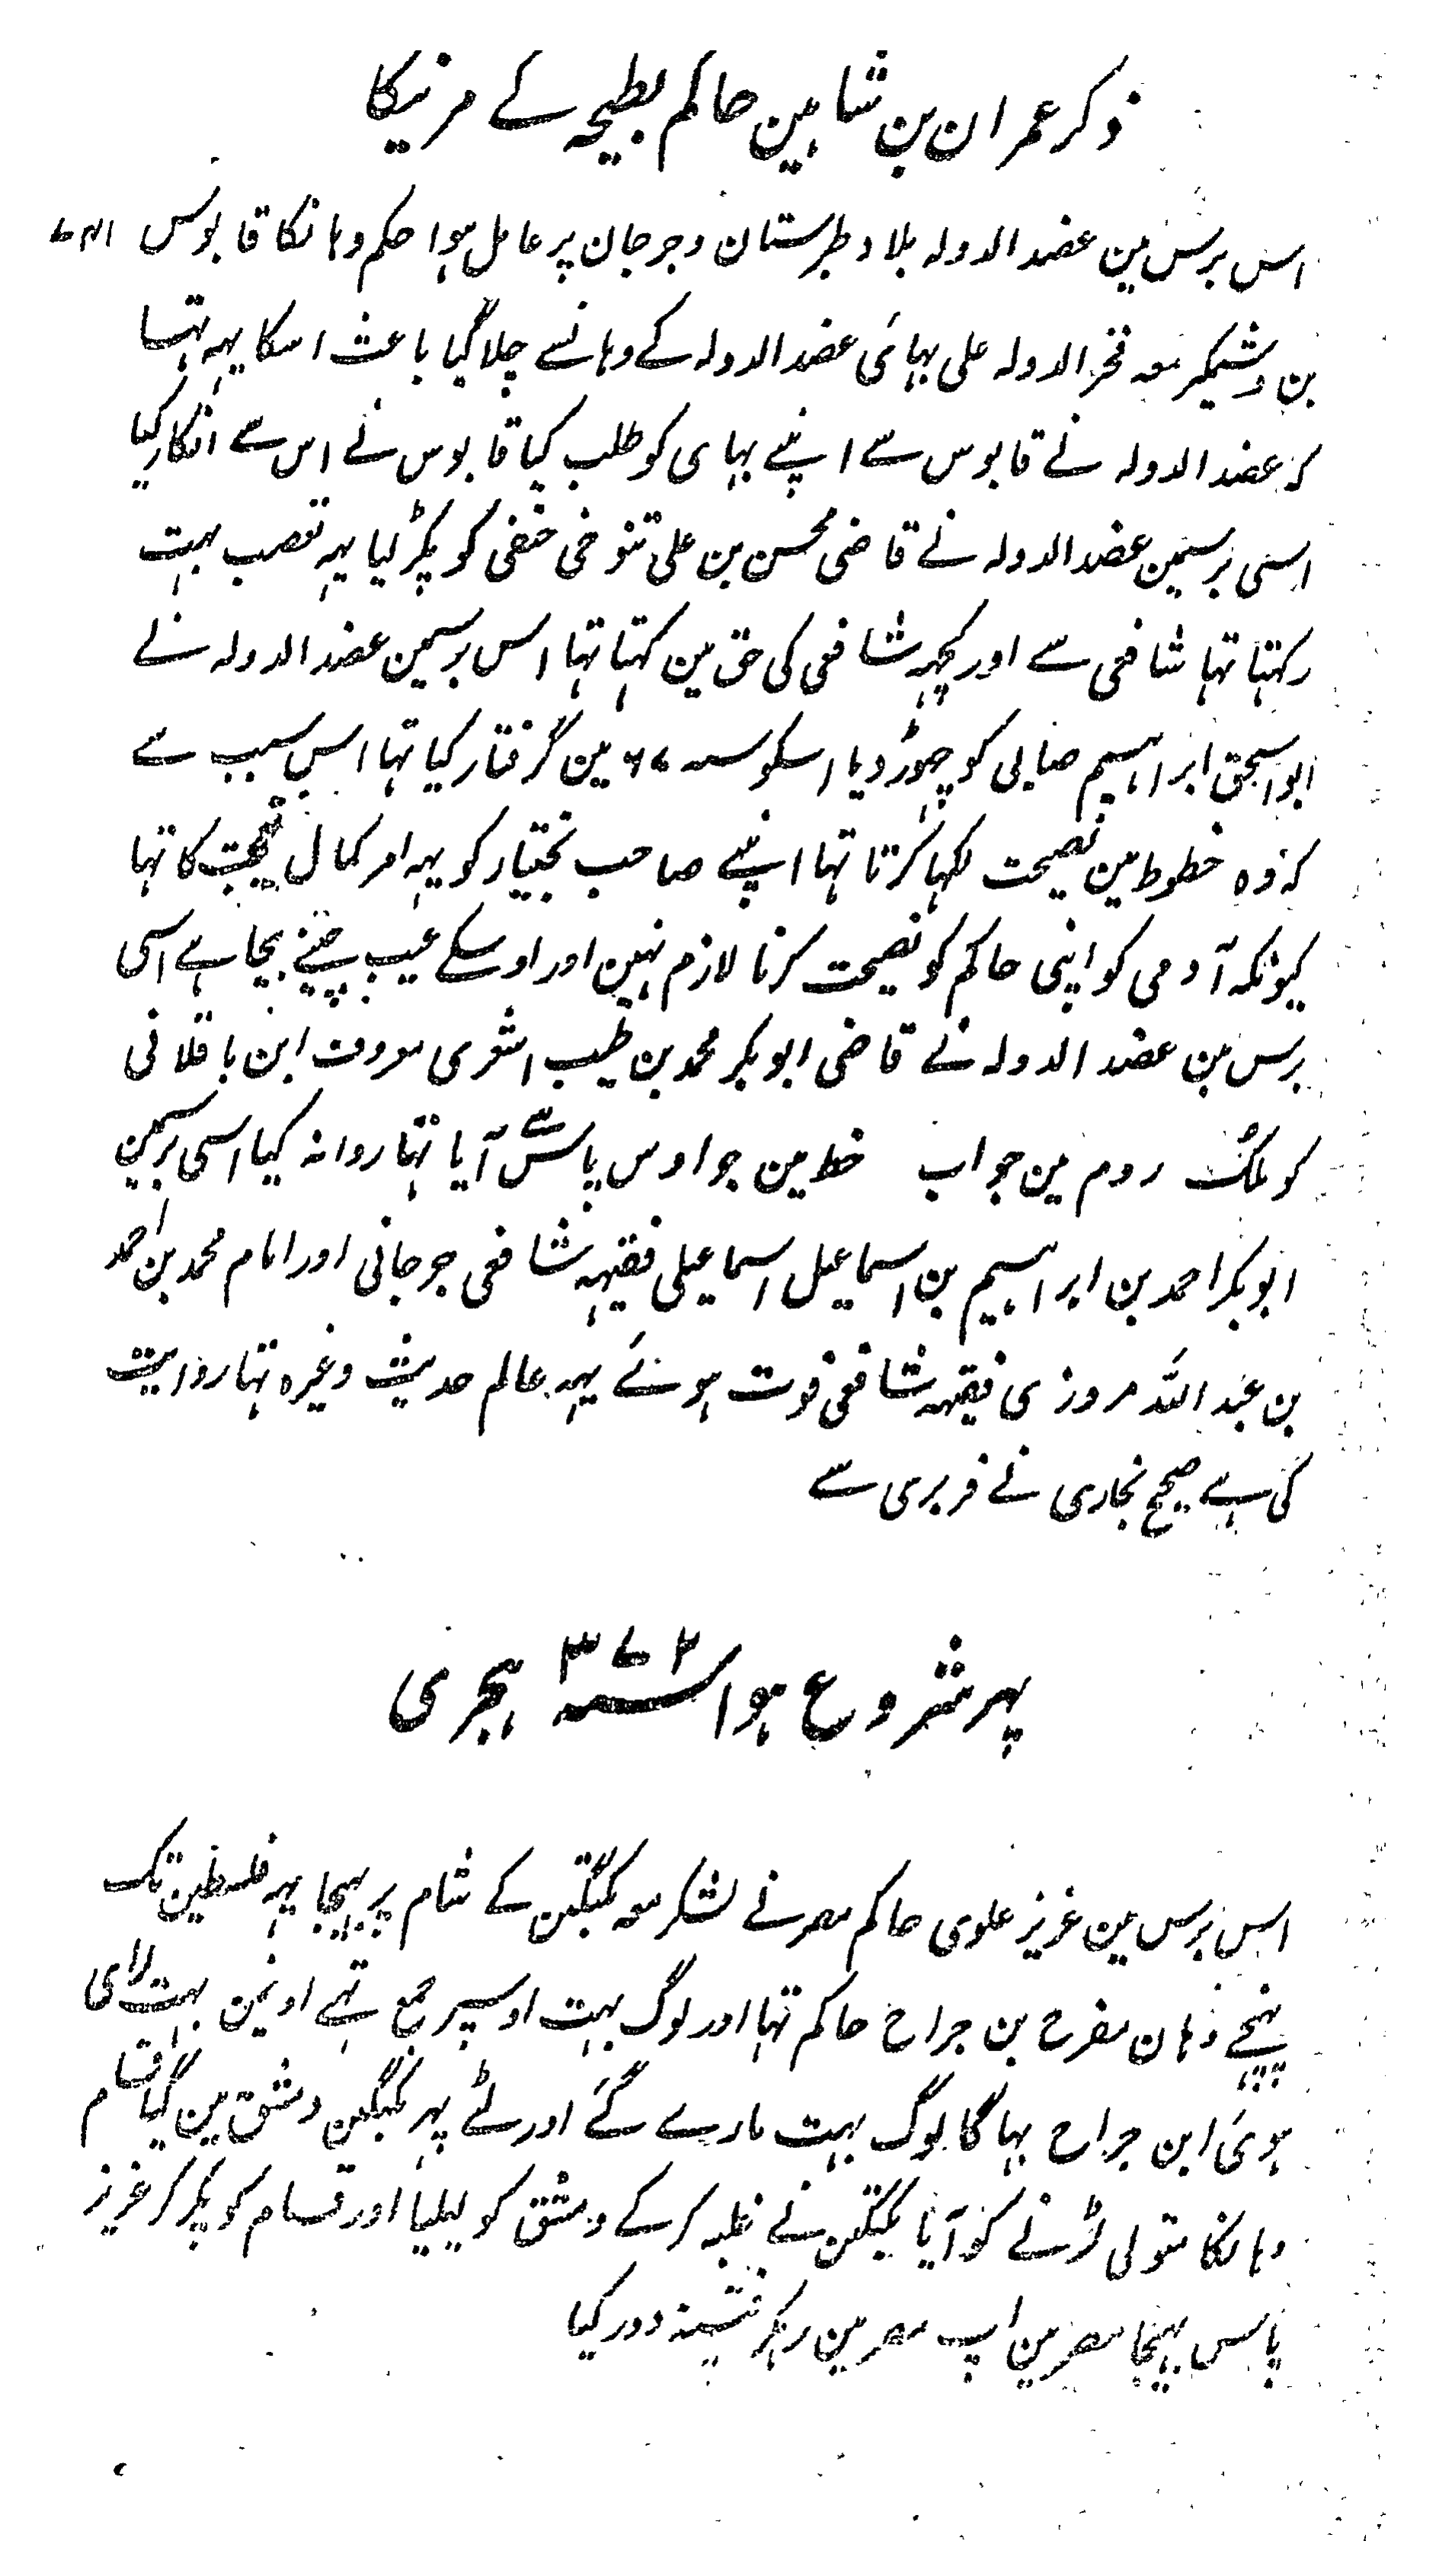 ذکر عمران بن شاہین حاکم بطیحہ کے مرنیکا
اس برس مین عضد الدولہ بلاد طبرستان وجرجان پر عامل ہوا حکم وہانکا قابوس
بن وشمگیر معہ فخر الدولہ علی بہائی عضد الدولہ کے وہانسے چلا گیا باعث اسکا یہہ تہا
کہ عضد الدولہ نے قابوس سے اپنے بہای کو طلب کیا قابوس نے اس سے انکار کیا
اسی برسمین عضد الدولہ نے قاضی محسن بن علی تنوخی حنفی کو پکڑ لیا یہہ تعصب بہت
رکہتا تہا شافعی سے اور کچہہ شافعی کی حق مین کہتا تہا اس برسمین عضد الدولہ نے
ابو اسحق ابراہیم صابی کو چہوڑ دیا اسکو سنہ ۶۷ مین گرفتار کیا تہا اس سبب سے
کہ وہ خطوط مین نصیحت لکہا کرتا تہا اپنے صاحب بختیار کو یہہ امر کمال تعجب کا تہا
کیونکہ آدمی کو اپنی حاکم کو نصیحت کرنا لازم نہین اور اوسکے عیب چننے بیجا ہے اسی
برس مین عضد الدولہ نے قاضی ابو بکر محمد بن طیب اشعری معروف ابن باقلانی
کو ملک روم مین جواب خط مین جو اوس پاس سے آیا تہا روانہ کیا اسی برسمین
ابو بکر احمد بن ابراہیم بن اسماعیل اسماعیلی فقیہہ شافعی جرجانی اور امام محمد بن احمد
بن عبد اللہ مروزی فقیہہ شافعی فوت ہوئے یہہ عالم حدیث وغیرہ تہا روایت
کی ہے صحیح بخاری نے فربری سے
پہر شروع ہوا سنہ ۳۷۲ ہجری
اس برس مین عزیز علوی حاکم مصر نے لشکر معہ بکتگین کے شام پر بہیجا یہہ فلسطین تک
پہنچے وہان مفرح بن جراح حاکم تہا اور لوگ بہت اوسپر جمع تہے اونمین بہت لڑای
ہوئی ابن جراح بہاگا لوگ بہت مارے گئے اور لٹے پہر بکتگین دمشق مین گیا قسام
وہانکا متولی لڑنے کو آیا بکتگین نے غلبہ کرکے دمشق کو لیلیا اور قسام کو پکڑ کر عزیز
پاس پہنچا مصر مین اپ مصر مین رہکر فتینہ دور کیا